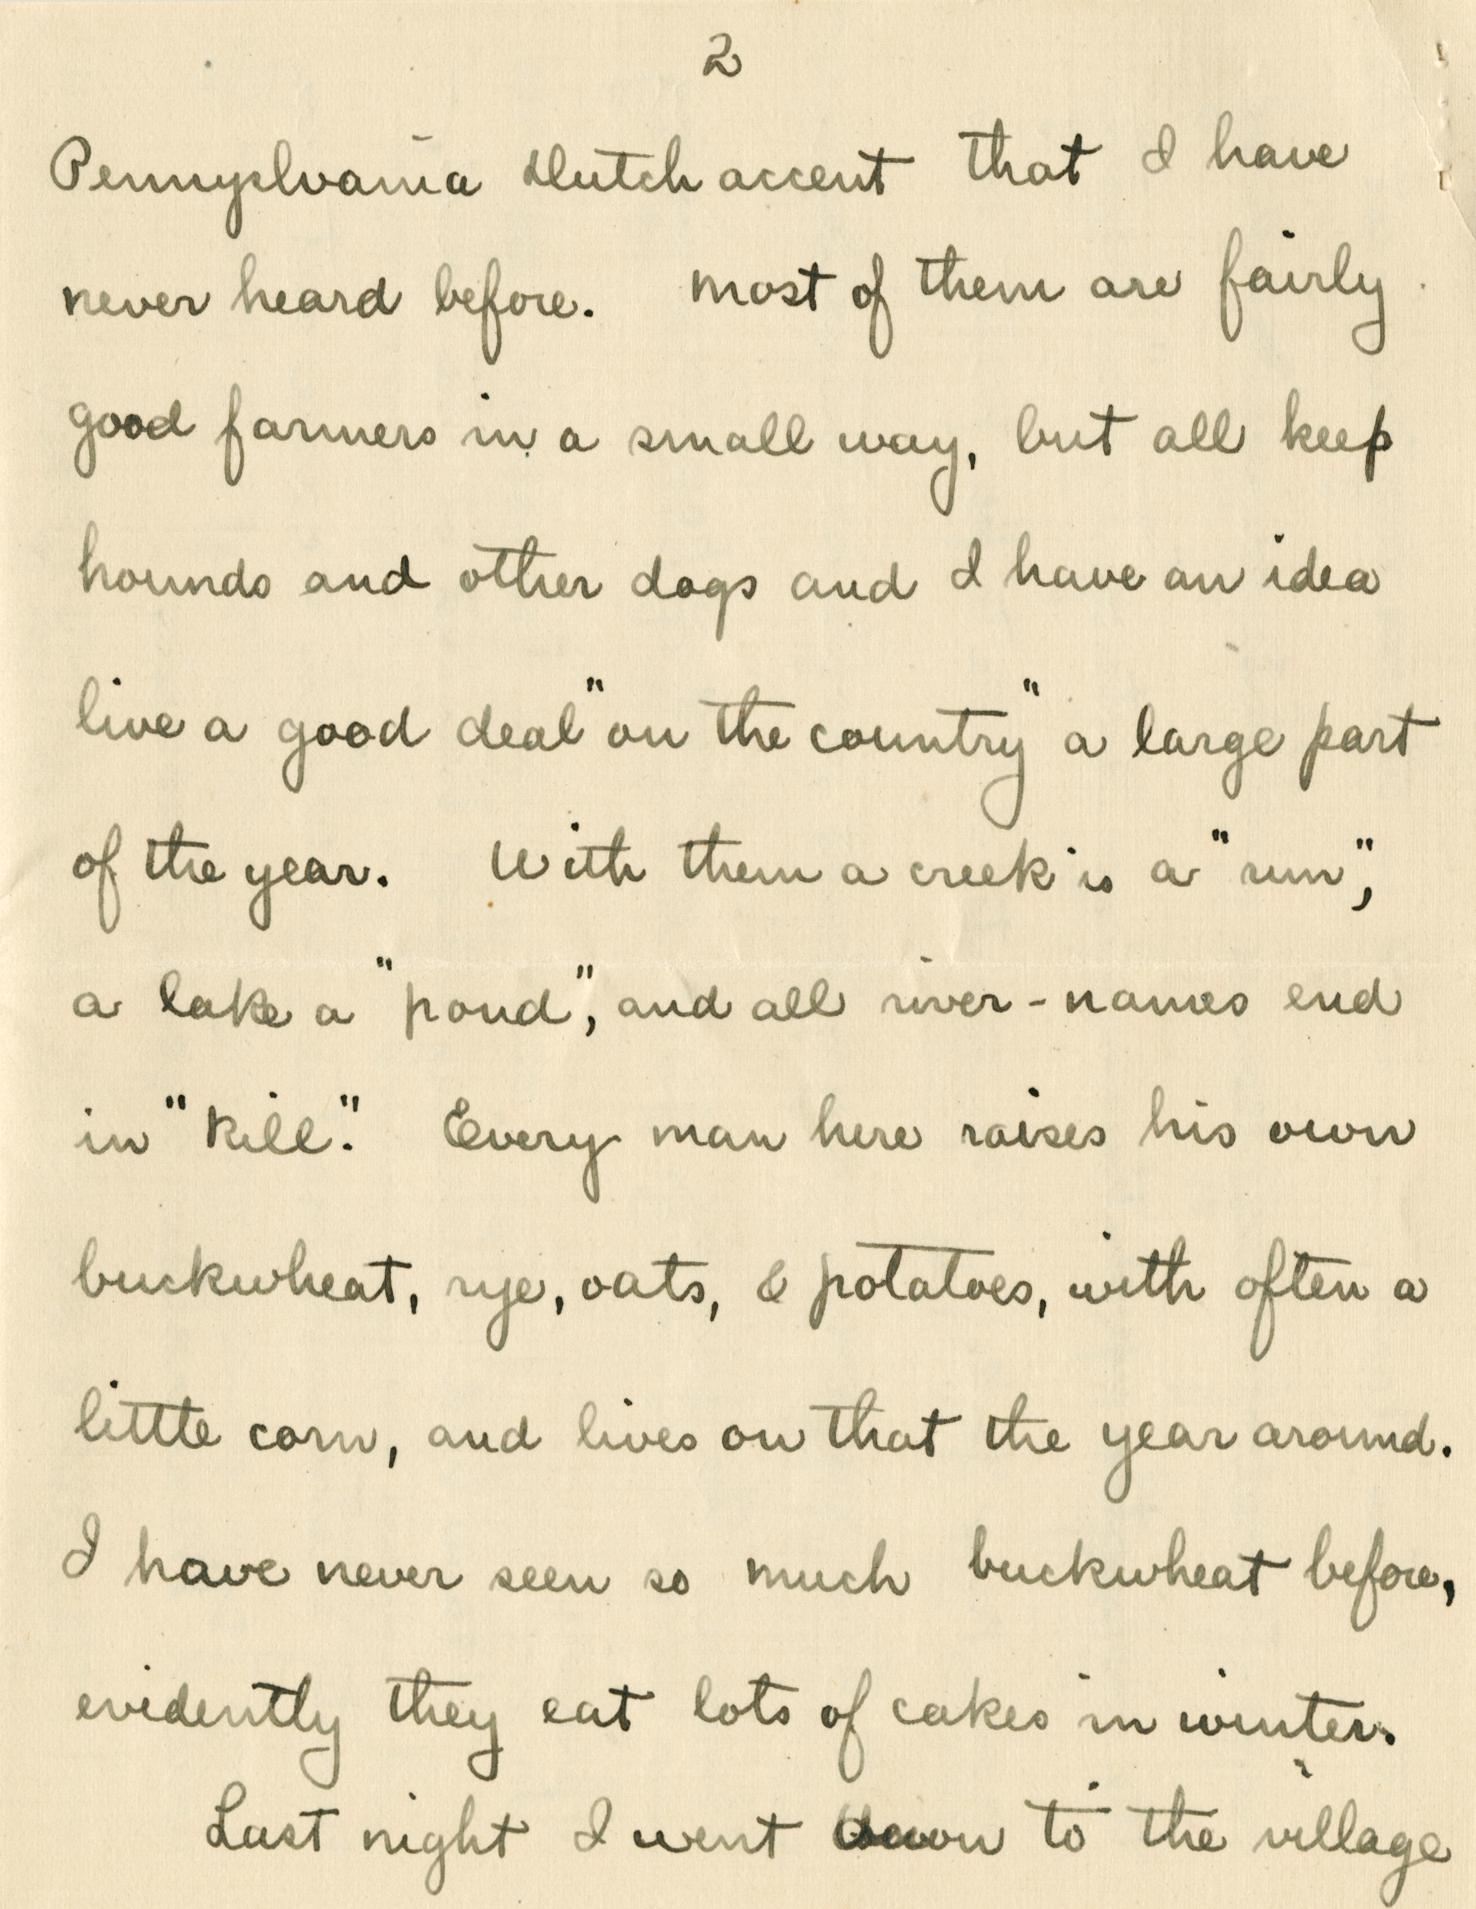 2
Pennyslvania Dutch accent that I have
never heard before. Most of them are fairly
good farmers in a small way, but all keep
hounds and other dogs and I have an idea
live a good deal "on the country" a large part
of the year. With them a creek is a "run",
a lake a "pond", and all river-names end
in "Kill". Every man here raises his own
buckwheat, rye, oats, & potatoes, with often a
little corn, and lives on that the year around.
I have never seen so much buckwheat before,
evidently they eat lots of cakes in winter.
Last night I went down to the village